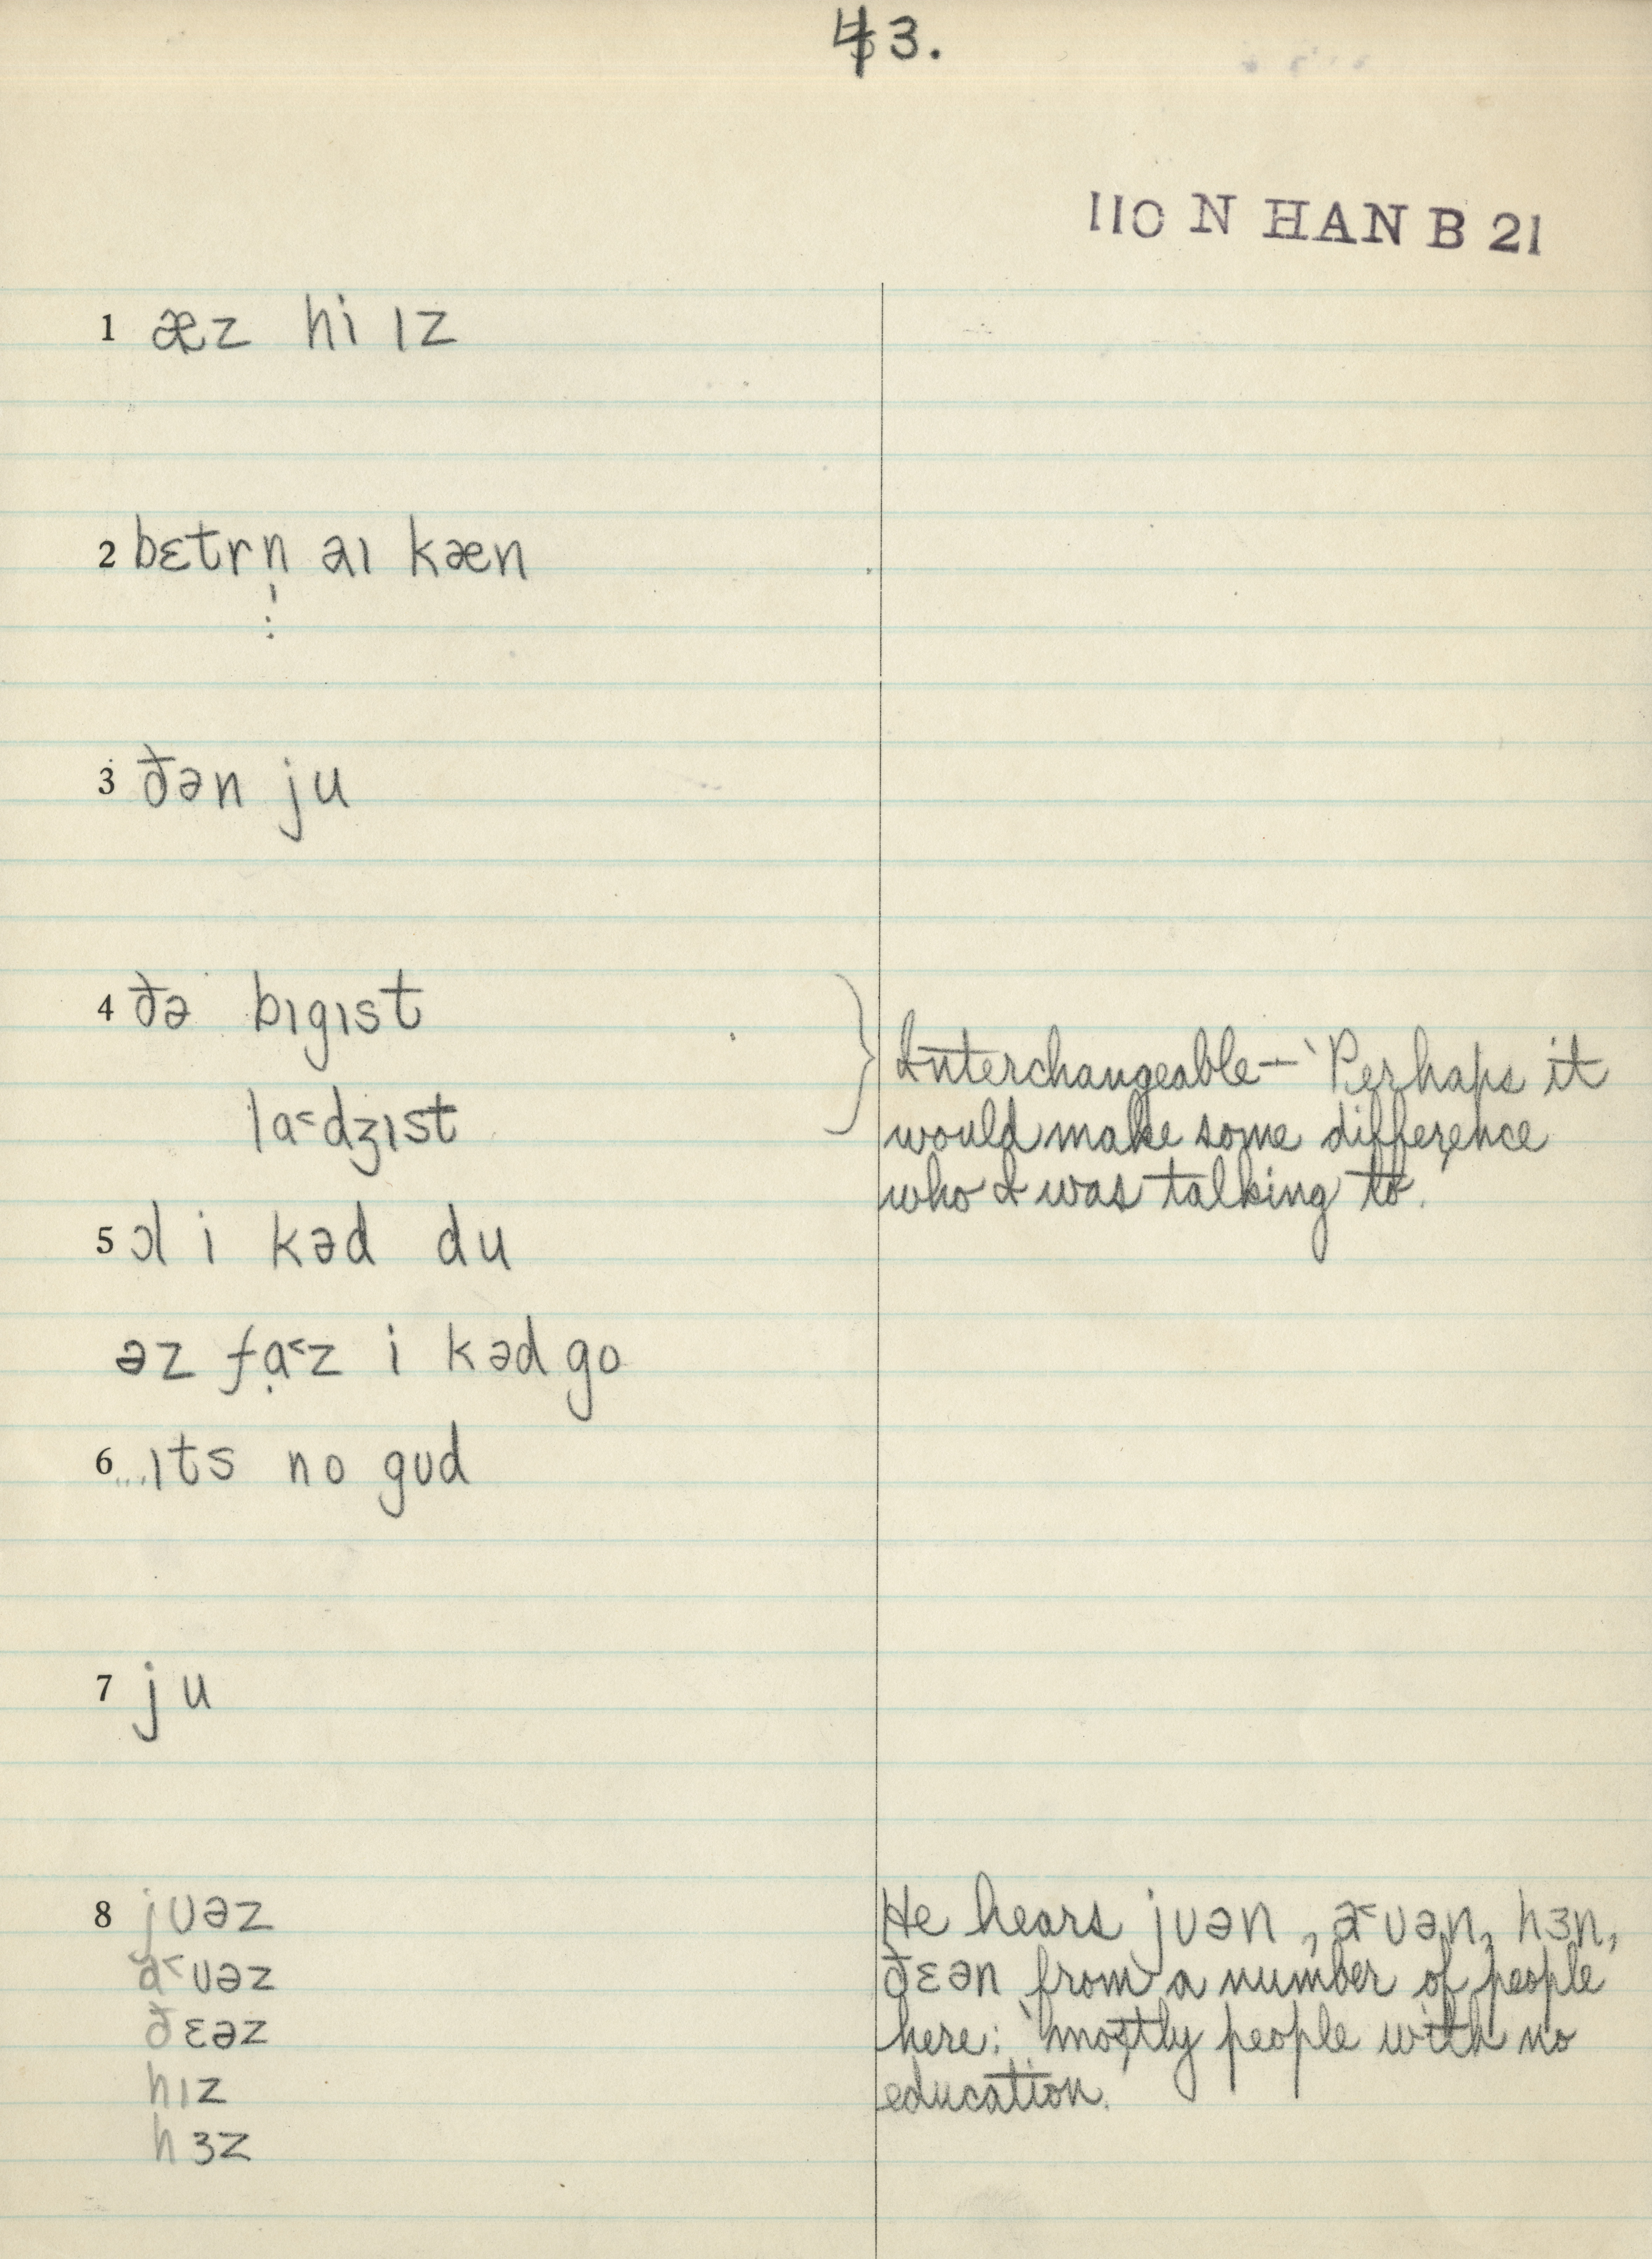 43.
110 N HAN B 21
1 æz hi ɪz
2 bɛtrn̩ aɪ kæn
3 ðən ju
4 ðə bɪgɪst
la˂dʒɪst
Interchangeable – ‵Perhaps it
would make some difference
who I was talking to.
5 ɔl i kəd du
əz fạ˂z i kəd go
6 ...ɪts no gʊd
7 ju
8 jʊəz
ă˂ʊəz
ðɛəz
hɪz
hɜz
He hears jʊən, ă˂ʊən, hɜn,
ðɛən from a number of people
here: ‵mostly people with no
education.